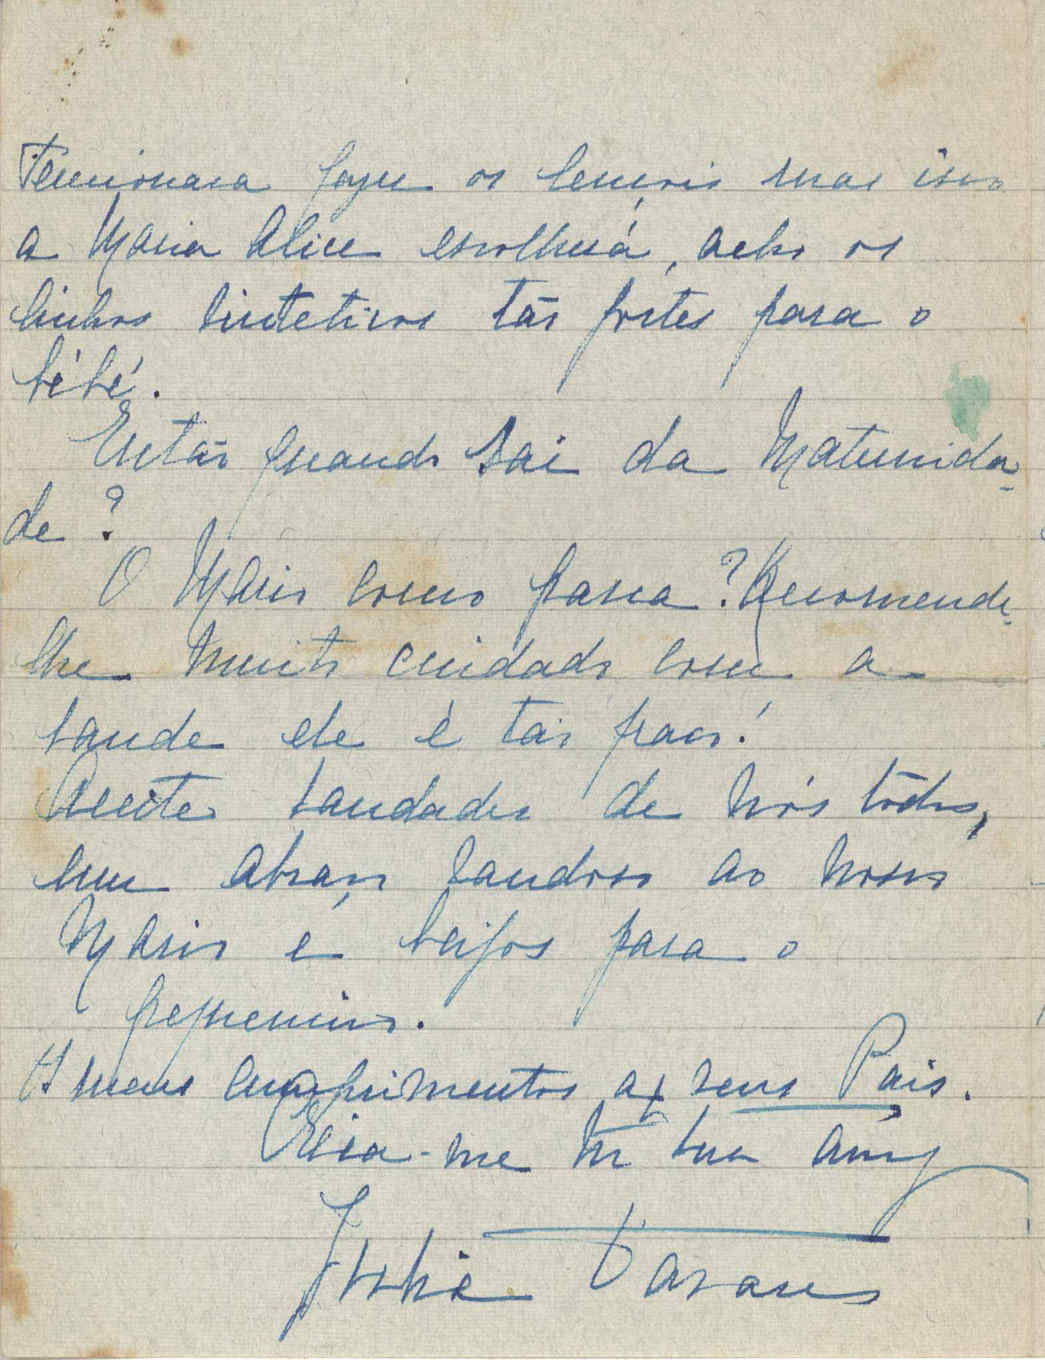 Tencionava fazer os lençois mas isso
a Maria Alice escolherá, acho os
linhos sinteticos tão fortes para o
bébé.
Então quando sai da Maternida-
de?
O Mario como passa? Recomende-
lhe muito cuidado com a
saude ele é tão fraco!
Aceite saudades de nós todos,
um abraço saudoso ao nosso
Mario e beijos para o
pequenino.
Os meus cumprimentos a seus Pais.
Creia-me sua amg
Tavares